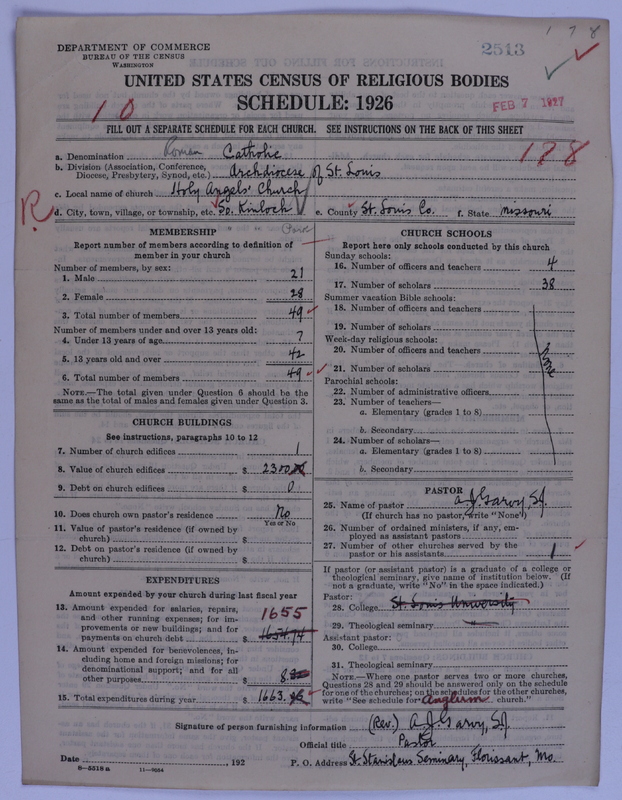 1 7 8
DEPARTMENT OF COMMERCE
BUREAU OF THE CENSUS
WASHINGTON
2513
UNITED STATES CENSUS OF RELIGIOUS BODIES
SCHEDULE: 1926
10
FEB 7 1927
FILL OUT A SEPARATE SCHEDULE FOR EACH CHURCH. SEE INSTRUCTIONS ON THE BACK OF THIS SHEET
178
a. Denomination Roman Catholic
b. Division (Association, Conference, Diocese, Presbytery, Synod, etc.) Archdiocese of St. Louis
c. Local name of church Holy Angels' Church
R
d. City, town, village, or township, etc. So. Kinloch Park e. County St. Louis Co. f. State Missouri
MEMBERSHIP
Report number of members according to definition of
member in your church
Number of members, by sex:
1. Male 21
2. Female 28
3. Total number of members 49
Number of members under and over 13 years old:
4. Under 13 years of age 7
5. 13 years old and over 42
6. Total number of members 49
NOTE.—The total given under Question 6 should be
same as the total of males and females given under Question 3.
CHURCH BUILDINGS
See instructions, paragraphs 10 to 12
7. Number of church edifices 1
8. Value of church edifices $ 2300
9. Debt on church edifices $ 0
10. Does church own pastor's residence No
Yes or No
11. Value of pastor's residence (if owned by
church) $
12. Debt on pastor's residence (if owned by
church) $
EXPENDITURES
Amount expended by your church during last fiscal year
13. Amount expended for salaries, repairs,
and other running expenses; for im-
provements or new buildings; and for
payments on church debt $ 1654.74 1655
14. Amount expended for benevolences, in-
cluding home and foreign missions; for
denominational support; and for all
other purposes $ 8
15. Total expenditures during year $ 1663.
CHURCH SCHOOLS
Report here only schools conducted by this church
Sunday schools:
16. Number of officers and teachers 4
17. Number of scholars 38
Summer vacation Bible schools:
18. Number of officers and teachers
19. Number of scholars
Week-day religious schools:
20. Number of officers and teachers
None
21. Number of scholars
Parochial schools:
22. Number of administrative officers
23. Number of teachers—
a. Elementary (grades 1 to 8)
b. Secondary
24. Number of scholars—
a. Elementary (grades 1 to 8)
b. Secondary
PASTOR
25. Name of pastor A. J. Garvy, S.J.
(If church has no pastor, write "None")
26. Number of ordained ministers, if any, em-
ployed as assistant pastors
27. Number of other churches served by the
pastor or his assistants 1
If pastor (or assistant pastor) is a graduate of a college or
theological seminary, give name of institution below. (If
not a graduate, write "No" in the space indicated.)
Pastor:
28. College St. Louis University
29. Theological seminary
Assistant pastor:
30. College
31. Theological seminary
NOTE.—Where one pastor serves two or more churches,
Questions 28 and 29 should be answered only on the schedule
for one of the churches; on the schedules for the other churches,
write "See schedule for Anglum church."
Signature of person furnishing information (Rev.) A. J. Garvy, S.J.
Official title Pastor
Date , 192 P. O. Address St. Stanislaus Seminary, Florissant, Mo.
8—5518 a 11—9664